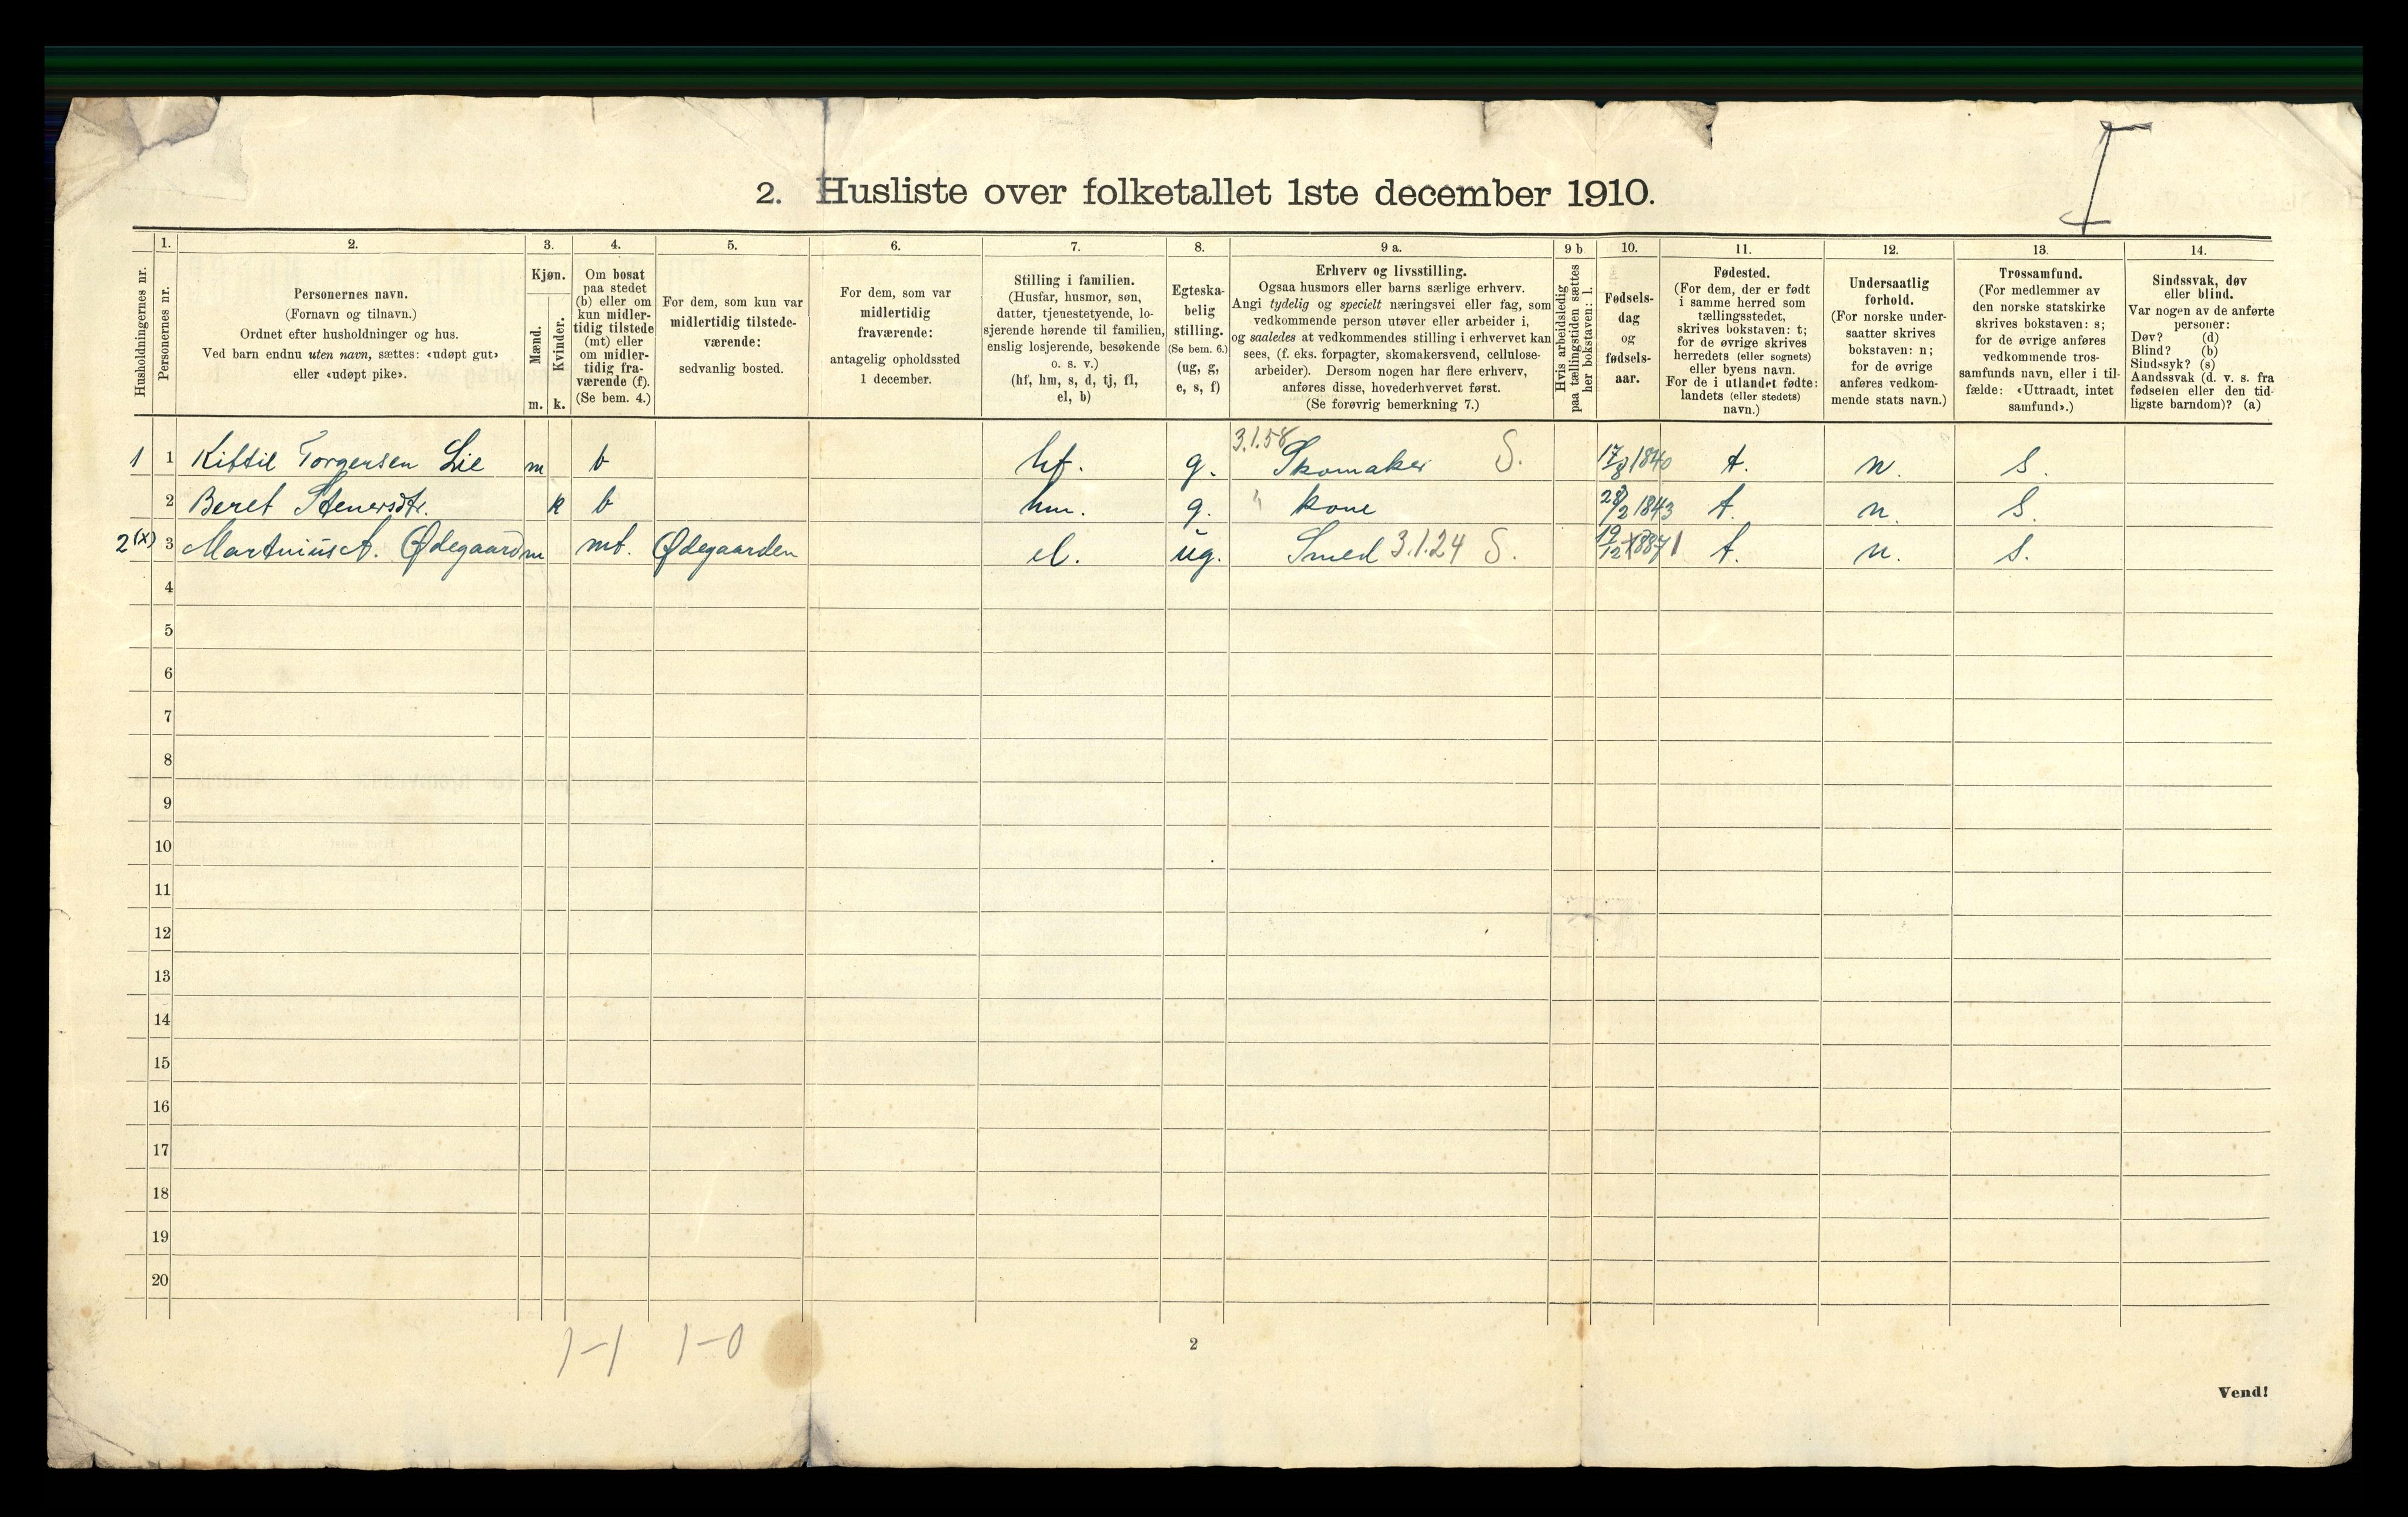 2. Husliste over folketallet 1ste december 1910.
1. 2. 3. 4. 5. 6. 7. 8. 9 a. 9 b 10. 11. 12. 13. 14.
Husholdningernes nr.
Personernes nr.
Personernes navn.
(Fornavn og tilnavn.)
Ordnet efter husholdninger og hus.
Ved barn endnu uten navn, sættes: «udøpt gut»
eller «udøpt pike».
Kjøn.
Mænd.
Kvinder.
m. k.
Om bosat
paa stedet
(b) eller om
kun midler-
tidig tilstede
(mt) eller
om midler-
tidig fra-
værende (f).
(Se bem. 4.)
For dem, som kun var
midlertidig tilstede-
værende:
sedvanlig bosted.
For dem, som var
midlertidig
fraværende:
antagelig opholdssted
1 december.
Stilling i familien.
(Husfar, husmor, søn,
datter, tjenestetyende, lo-
sjerende hørende til familien,
enslig losjerende, besøkende
o. s. v.)
(hf, hm, s, d, tj, fl,
el, b)
Egteska-
belig
stilling.
(Se bem. 6.)
(ug, g,
e, s, f)
Erhverv og livsstilling.
Ogsaa husmors eller barns særlige erhverv.
Angi tydelig og specielt næringsvei eller fag, som
vedkommende person utøver eller arbeider i,
og saaledes at vedkommendes stilling i erhvervet kan
sees, (f. eks. forpagter, skomakersvend, cellulose-
arbeider). Dersom nogen har flere erhverv,
anføres disse, hovederhvervet først.
(Se forøvrig bemerkning 7.)
Hvis arbeidsledig
paa tællingstiden sættes
her bokstaven: l.
Fødsels-
dag
og
fødsels-
aar.
Fødested.
(For dem, der er født
i samme herred som
tællingsstedet,
skrives bokstaven: t;
for de øvrige skrives
herredets (eller sognets)
eller byens navn.
For de i utlandet fødte:
landets (eller stedets)
navn.)
Undersaatlig
forhold.
(For norske under-
saatter skrives
bokstaven: n;
for de øvrige
anføres vedkom-
mende stats navn.)
Trossamfund.
(For medlemmer av
den norske statskirke
skrives bokstaven: s;
for de øvrige anføres
vedkommende tros-
samfunds navn, eller i til-
fælde: «Uttraadt, intet
samfund».)
Sindssvak, døv
eller blind.
Var nogen av de anførte
personer:
Døv? (d)
Blind? (b)
Sindssyk? (s)
Aandssvak (d. v. s. fra
fødselen eller den tid-
ligste barndom)? (a)
1 1 Kittil Torgersen Lie m b hf. g. 3.1.58 Skomaker S. 17/8 1840 t. n. s.
2 Beret Stenersdtr. k b hm. g. " kone 28/2 1843 t. n. s.
2 (x) 3 Martinius A. Ødegaard m mt. Ødegaarden el. ug. Smed 3.1.24 S. 19/12 1887 t. n. s.
4
5
6
7
8
9
10
11
12
13
14
15
16
17
18
19
20
1-1 1-0
2
Vend!